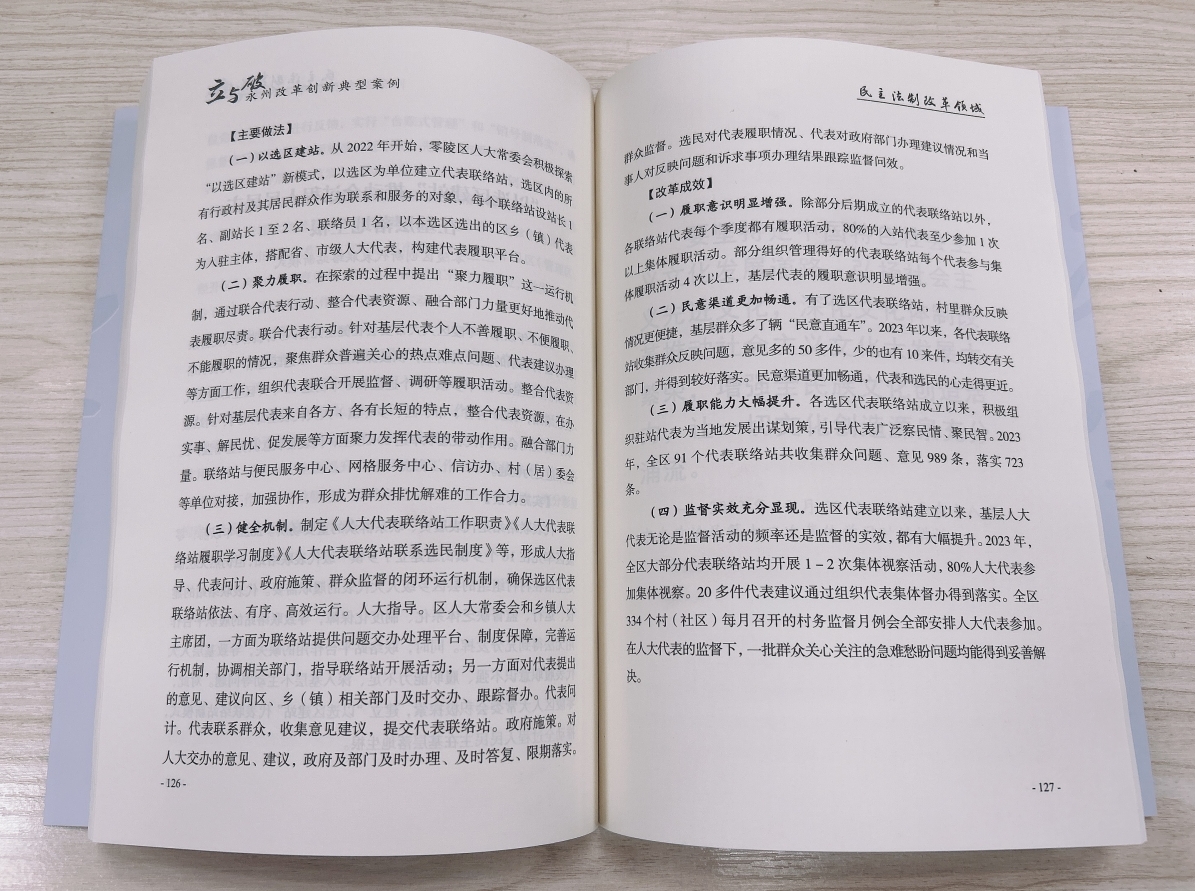 立与破
永州改革创新典型案例
【主要做法】
（一）以选区建站。从 2022 年开始，零陵区人大常委会积极探索
“以选区建站”新模式，以选区为单位建立代表联络站，选区内的所
有行政村及其居民群众作为联系和服务的对象，每个联络站设站长 1
名、副站长 1 至 2 名、联络员 1 名，以本选区选出的区乡（镇）代表
为入驻主体，搭配省、市级人大代表，构建代表履职平台。
（二）聚力履职。在探索的过程中提出“聚力履职”这一运行机
制，通过联合代表行动、整合代表资源、融合部门力量更好地推动代
表履职尽责。联合代表行动。针对基层代表个人不善履职、不便履职、
不能履职的情况，聚焦群众普遍关心的热点难点问题、代表建议办理
等方面工作，组织代表联合开展监督、调研等履职活动。整合代表资
源。针对基层代表来自各方、各有长短的特点，整合代表资源，在办
实事、解民忧、促发展等方面聚力发挥代表的带动作用。融合部门力
量。联络站与便民服务中心、网格服务中心、信访办、村（居）委会
等单位对接，加强协作，形成为群众排忧解难的工作合力。
（三）健全机制。制定《人大代表联络站工作职责》《人大代表联
络站履职学习制度》《人大代表联络站联系选民制度》等，形成人大指
导、代表问计、政府施策、群众监督的闭环运行机制，确保选区代表
联络站依法、有序、高效运行。人大指导。区人大常委会和乡镇人大
主席团，一方面为联络站提供问题交办处理平台、制度保障，完善运
行机制，协调相关部门，指导联络站开展活动；另一方面对代表提出
的意见、建议向区、乡（镇）相关部门及时交办、跟踪督办。代表问
计。代表联系群众，收集意见建议，提交代表联络站。政府施策。对
人大交办的意见、建议，政府及部门及时办理、及时答复、限期落实。
- 126 -
民主法制改革领域
群众监督。选民对代表履职情况、代表对政府部门办理建议情况和当
事人对反映问题和诉求事项办理结果跟踪监督问效。
【改革成效】
（一）履职意识明显增强。除部分后期成立的代表联络站以外，
各联络站代表每个季度都有履职活动，80%的入站代表至少参加 1 次
以上集体履职活动。部分组织管理得好的代表联络站每个代表参与集
体履职活动 4 次以上，基层代表的履职意识明显增强。
（二）民意渠道更加畅通。有了选区代表联络站，村里群众反映
情况更便捷，基层群众多了辆“民意直通车”。2023 年以来，各代表联络
站收集群众反映问题，意见多的 50 多件，少的也有 10 来件，均转交有关
部门，并得到较好落实。民意渠道更加畅通，代表和选民的心走得更近。
（三）履职能力大幅提升。各选区代表联络站成立以来，积极组
织驻站代表为当地发展出谋划策，引导代表广泛察民情、聚民智。2023
年，全区 91 个代表联络站共收集群众问题、意见 989 条，落实 723
条。
（四）监督实效充分显现。选区代表联络站建立以来，基层人大
代表无论是监督活动的频率还是监督的实效，都有大幅提升。2023 年，
全区大部分代表联络站均开展 1－2 次集体视察活动，80%人大代表参
加集体视察。20 多件代表建议通过组织代表集体督办得到落实。全区
334 个村（社区）每月召开的村务监督月例会全部安排人大代表参加。
在人大代表的监督下，一批群众关心关注的急难愁盼问题均能得到妥善解
决。
- 127 -